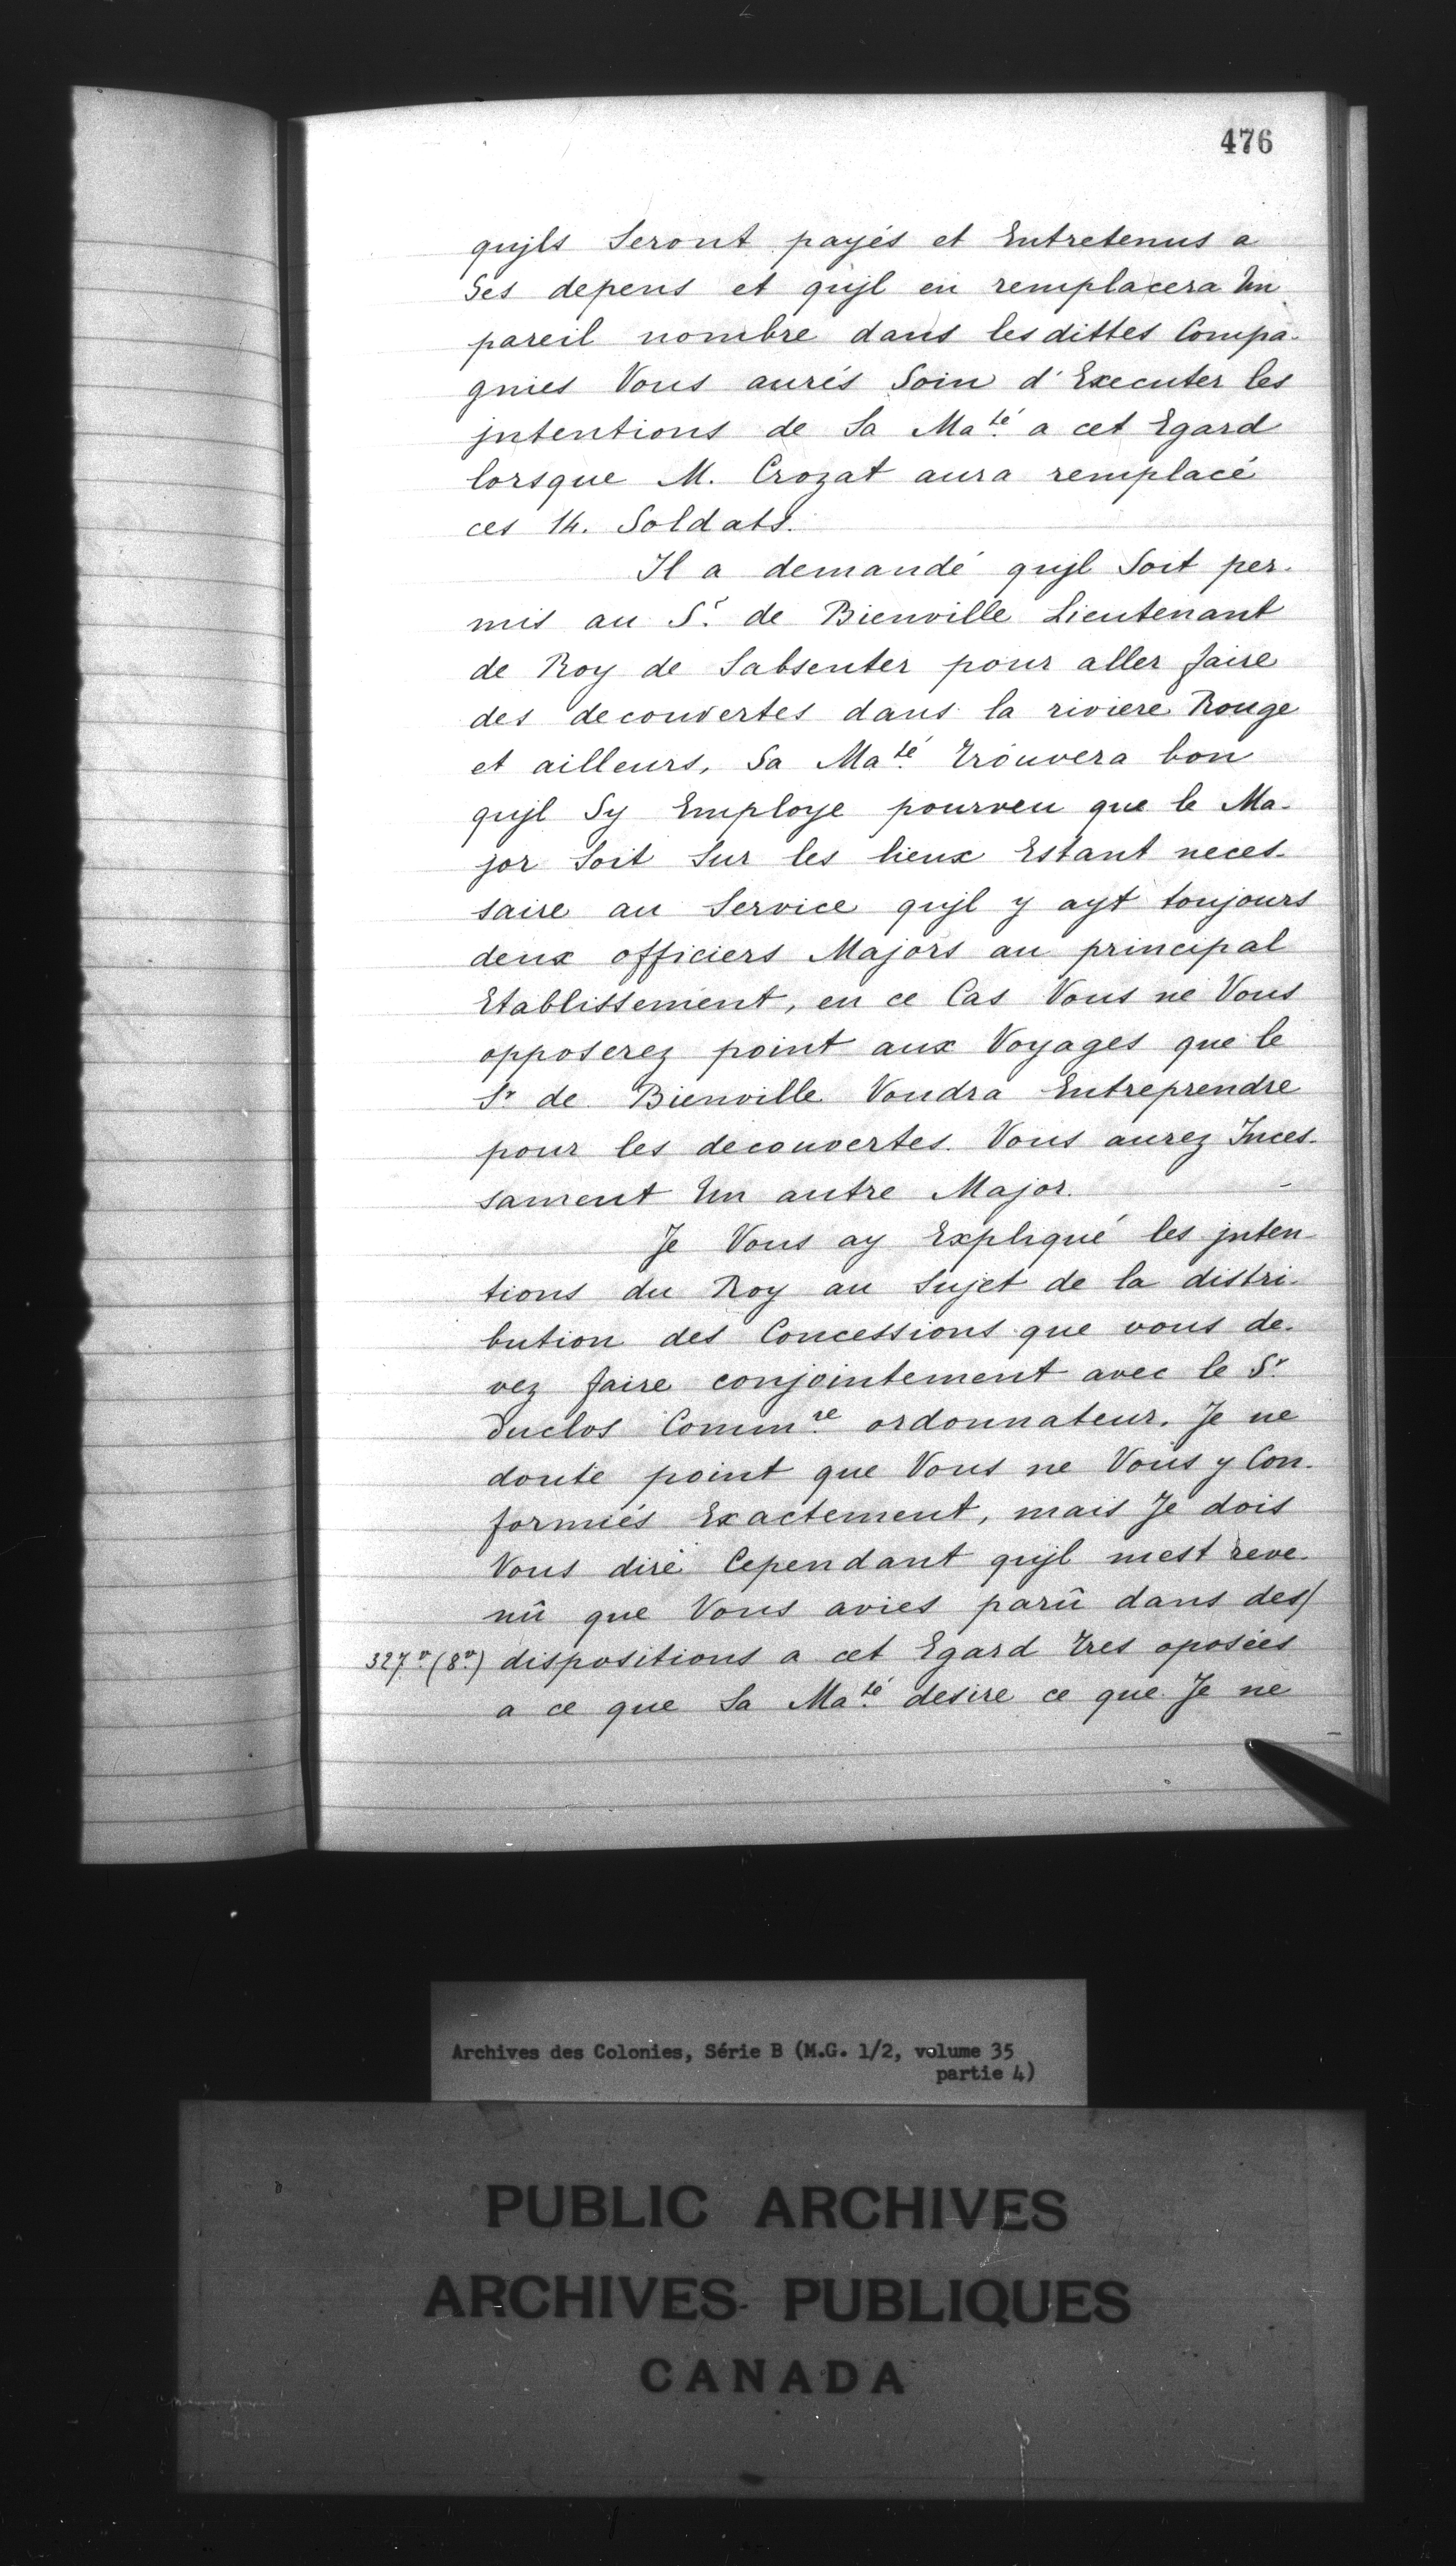 476
qujls Seront payés et Entretenus a
Ses depens et qujl en remplacera Un
pareil nombre dans lesdittes Compa-
gnies Vous aurés Soin d'Executer les
jntentions de Sa Ma.té a cet Egard
lorsque M. Crozat aura remplacé
ces 14. Soldats.
Il a demandé qujl Soit per-
mis au S.r de Bienville Lieutenant
de Roy de Sabsenter pour aller faire
des decouvertes dans la riviere Rouge
et ailleurs, Sa Ma.té trouvera bon
qujl Sy Employe pourveu que le Ma-
jor Soit Sur les lieux Estant neces-
saire au Service qujl y ayt toujours
deux officiers Majors au principal
Etablissement, en ce Cas Vous ne Vous
opposerez point aux Voyages que le
Sr de Bienville Voudra Entreprendre
pour les decouvertes. Vous aurez Inces-
sament Un autre Major.
Je Vous ay Expliqué les jnten
tions du Roy au Sujet de la distri-
bution des Concessions que vous de-
vez faire conjointement avec le Sr
Duclos Comm.re ordonnateur. Je ne
doute point que Vous ne Vous y Con-
formiés Exactement, mais Je dois
Vous dire Cependant qujl mest reve-
nû que Vous avies parû dans des/
327 v. (8 v.) dispositions a cet Egard tres oposées
a ce que Sa Ma.té desire ce que Je ne
Archives des Colonies, Série B (M.G. 1/2, volume 35
partie 4)
PUBLIC ARCHIVES
ARCHIVES PUBLIQUES
CANADA